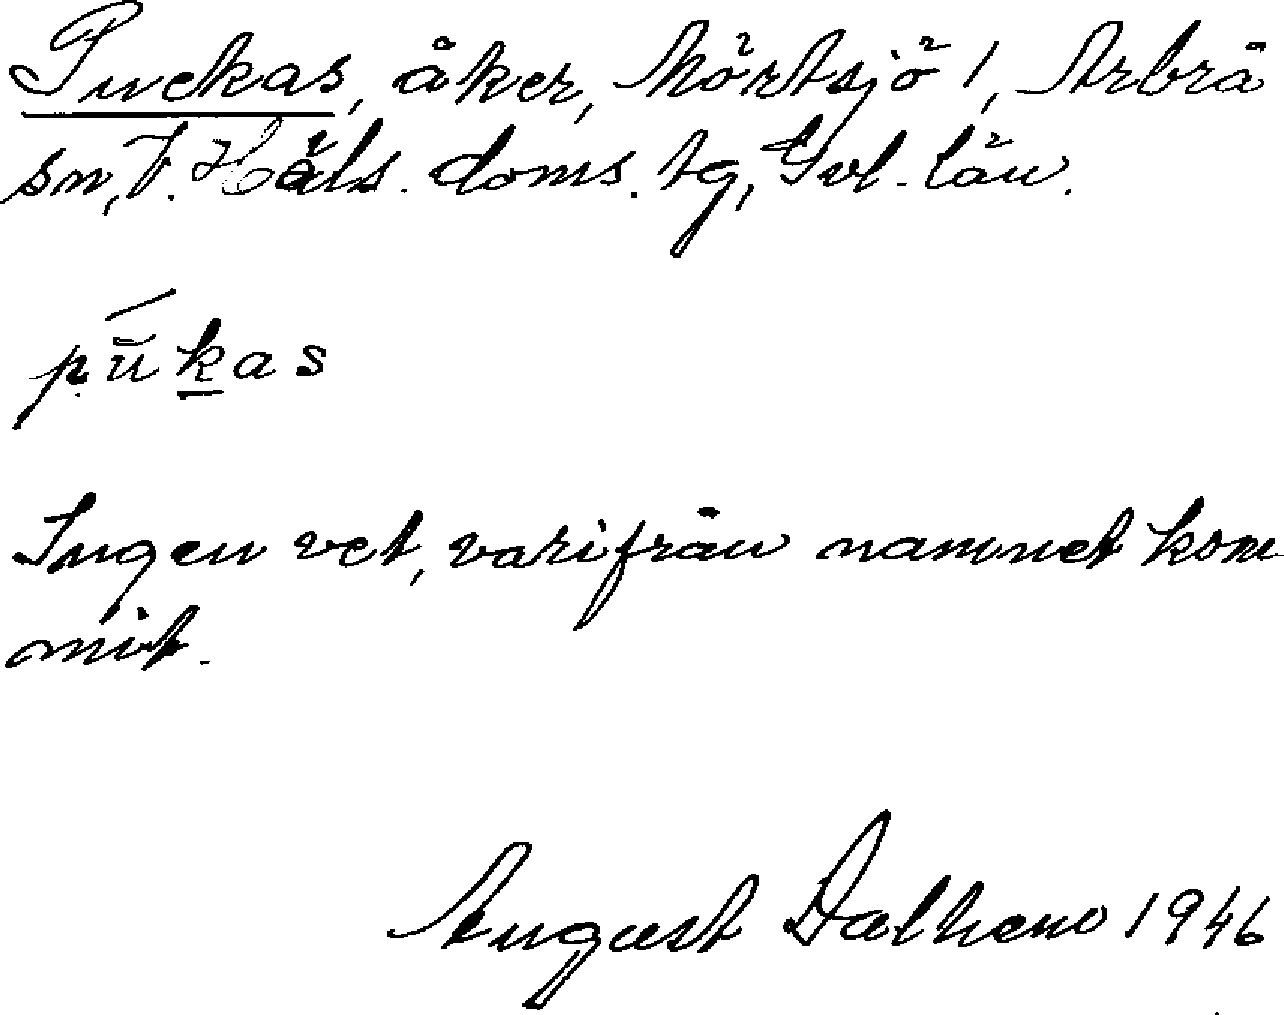 Puckas, åker, Mörtsjö 1, Arbrå
sn, V. Häls. doms. tg, Gvl. län.
pŭkas
Ingen vet, varifrån namnet kom
mit.
August Dalhemo 1946